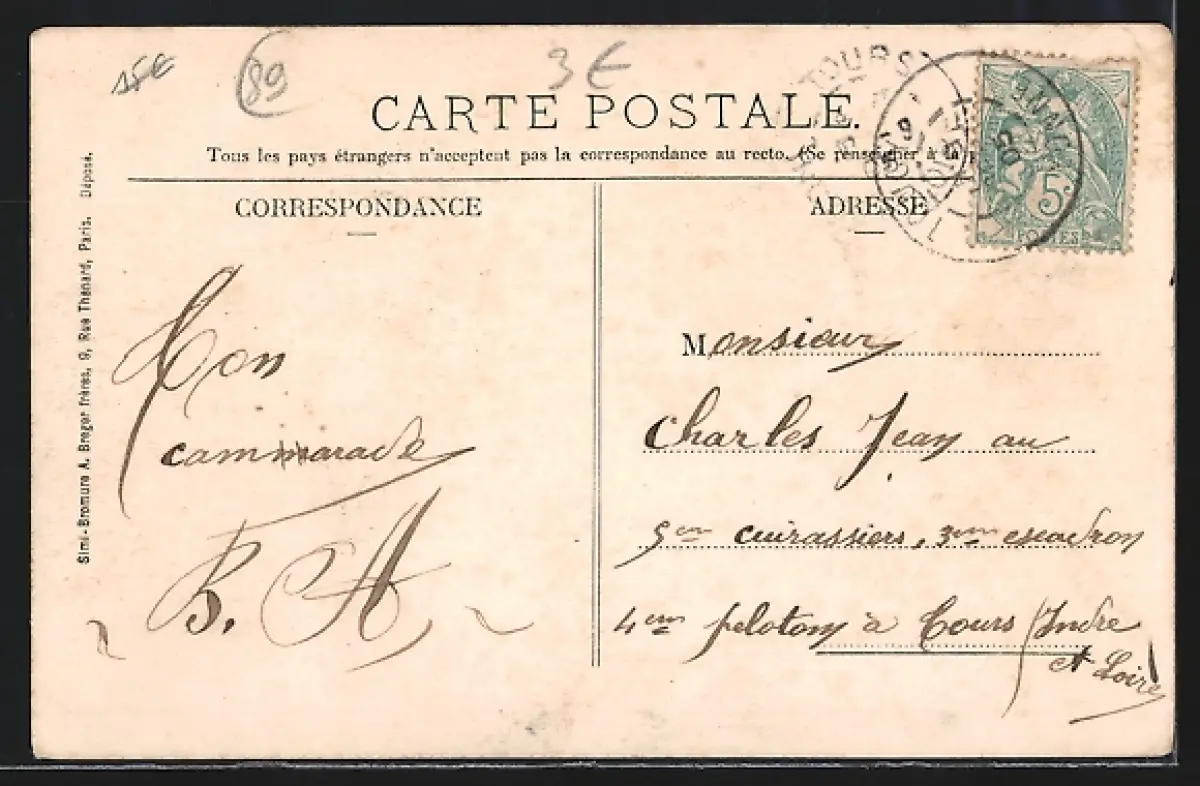 15€
89
3€
CARTE POSTALE.
Tous les pays étrangers n'acceptent pas la correspondance au recto. (Se renseigner à la
CORRESPONDANCE
ADRESSE
TOURS
5
POSTES
Simi-Bromure A. Breger frères, 9, Rue Thenard, Paris. Déposé.
Ton
cammarade
B. A
Monsieur
Charles Jean au
5em cuirassiers, 3em escadron
4em peloton à Tours (Indre
et Loire)